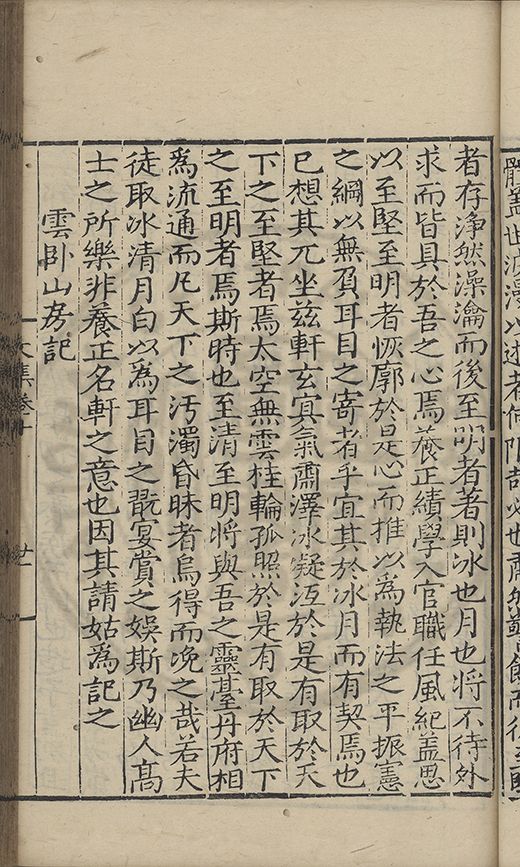 者存淨然澡瀹而後至明者著則冰也月也將不待外
求而皆具於吾之心焉養正績學入官職任風紀蓋思
以至堅至明者恢廓於是心而推以為執法之平振憲
之綱以無負耳目之寄者乎宜其於冰月而有契焉也
已想其兀坐茲軒玄冥氣肅澤冰凝沍於是有取於天
下之至堅者焉太空無雲桂輪孤照於是有取於天下
之至明者焉斯時也至清至明將與吾之靈臺丹府相
為流通而凡天下之汚濁昏昧者烏得而浼之哉若夫
徒取冰清月白以為耳目之翫宴賞之娛斯乃幽人高
士之所樂非養正名軒之意也因其請姑為記之
雲臥山房記